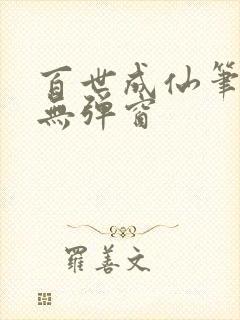 百世成仙筆
無彈窗
羅善文